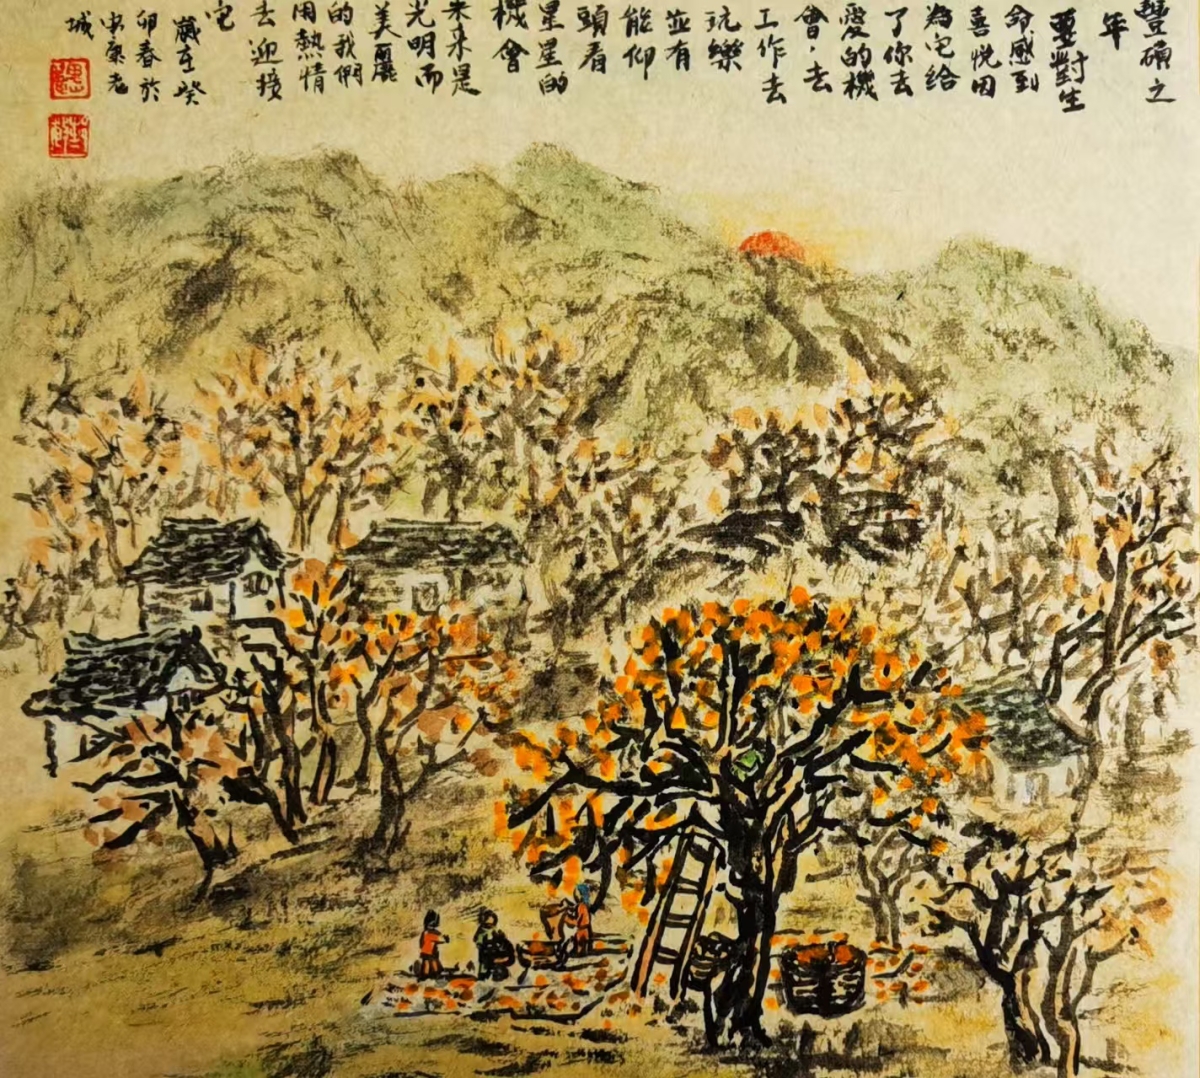 豐碩之
年
要對生
命感到
喜悦因
為它给
了你去
愛的機
會，去
工作去
玩樂
並有
能仰
頭看
星星的
機會
未来是
光明而
美麗
的我們
用熱情
去迎接
它
歲在癸
卯春於
安康老
城